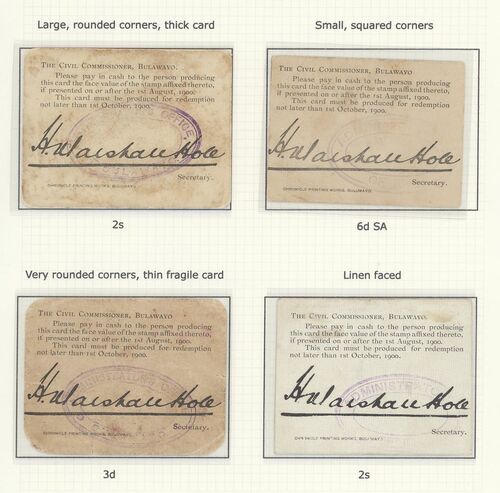 Large, rounded corners, thick card
THE CIVIL COMMISSIONER, BULAWAYO.
Please pay in cash to the person producing
this card the face value of the stamp affixed thereto,
if presented on or after the 1st August, 1900.
This card must be produced for redemption
not later than 1st October, 1900.
OFFICE
H. Marshall Hole
Secretary.
CHRONICLE PRINTING WORKS, BULAWAYO.
2s
Small, squared corners
THE CIVIL COMMISSIONER, BULAWAYO
Please pay in cash to the person producing
this card the face value of the stamp affixed thereto,
if presented on or after the 1st August, 1900.
This card must be produced for redemption
not later than 1st October, 1900.
H. Marshall Hole
Secretary.
CHRONICLE PRINTING WORKS, BULAWAYO.
6d SA
Very rounded corners, thin fragile card
THE CIVIL COMMISSIONER, BULAWAYO.
Please pay in cash to the person producing
this card the face value of the stamp affixed thereto,
if presented on or after the 1st August, 1900.
This card must be produced for redemption
not later than 1st October, 1900.
H. Marshall Hole
Secretary.
CHRONICLE PRINTING WORKS, BULAWAYO.
3d
Linen faced
THE CIVIL COMMISSIONER, BULAWAYO.
Please pay in cash to the person producing
this card the face value of the stamp affixed thereto,
if presented on or after the 1st August, 1900.
This card must be produced for redemption
not later than 1st October, 1900.
H. Marshall Hole
Secretary.
CHRONICLE PRINTING WORKS, BULAWAYO.
2s